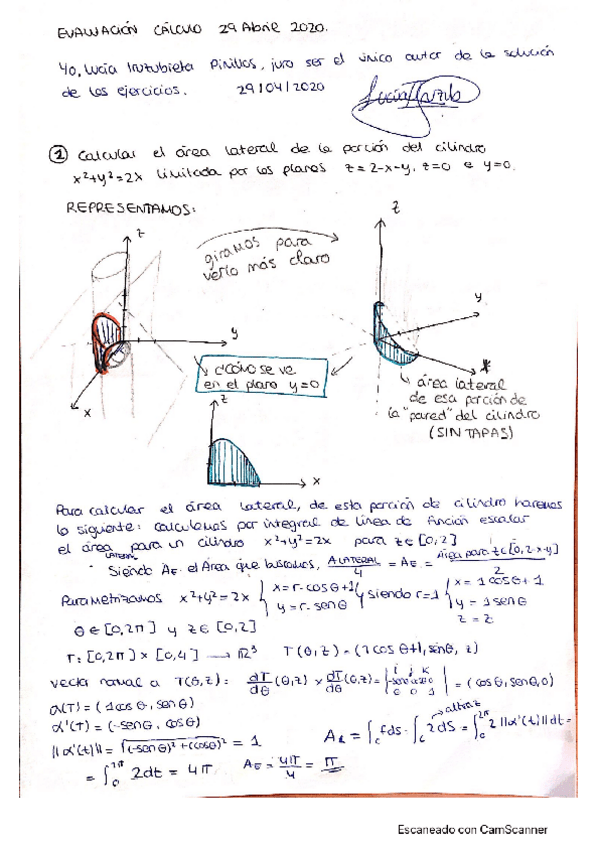 EVALUACIÓN CÁLCULO 29 Abril 2020.
Yo, Lucía Inzubieta Pinillos, juro ser el único autor de la solución
de los ejercicios. 29/04/2020
① Calcular el área lateral de la porción del cilindro
x²+y²=2x limitada por los planos z=2-x-y, z=0 e y=0.
REPRESENTAMOS:
z
y
x
giramos para
verlo más claro
z
y
x
¿Cómo se ve
en el plano y=0
área lateral
de esa porción de
la "pared" del cilindro
(SIN TAPAS)
z
x
Para calcular el área lateral, de esta porción de cilindro haremos
lo siguiente: calculamos por integral de línea de función escalar
el área LATERAL para un cilindro x²+y²=2x para z∈[0,2]
Siendo A_E el Área que buscamos, A LATERAL/4 = A_E = Área para z∈[0,2-x-y]/2
Parametrizamos x²+y²=2x { x=r·cosθ+1 y=r·senθ } siendo r=1 { x=1cosθ+1 y=1senθ z=z
θ∈[0,2π] y z∈[0,2]
r:[0,2π]×[0,4] → ℝ³ T(θ,z)=(1cosθ+1, senθ, z)
vector normal a T(θ,z): dT/dθ (θ,z) × dT/dz (θ,z) = |i j k 0 0 1| = (cosθ, senθ, 0)
α(T) = (1cosθ, senθ)
α'(T) = (-senθ, cosθ)
||α'(t)|| = √((-senθ)²+(cosθ)²) = 1
altura z
A_L = ∫_c f ds = ∫_c 2dS = ∫₀^2π 2||α'(t)||dt =
= ∫₀^2π 2dt = 4π A_E = 4π/4 = π
Escaneado con CamScanner